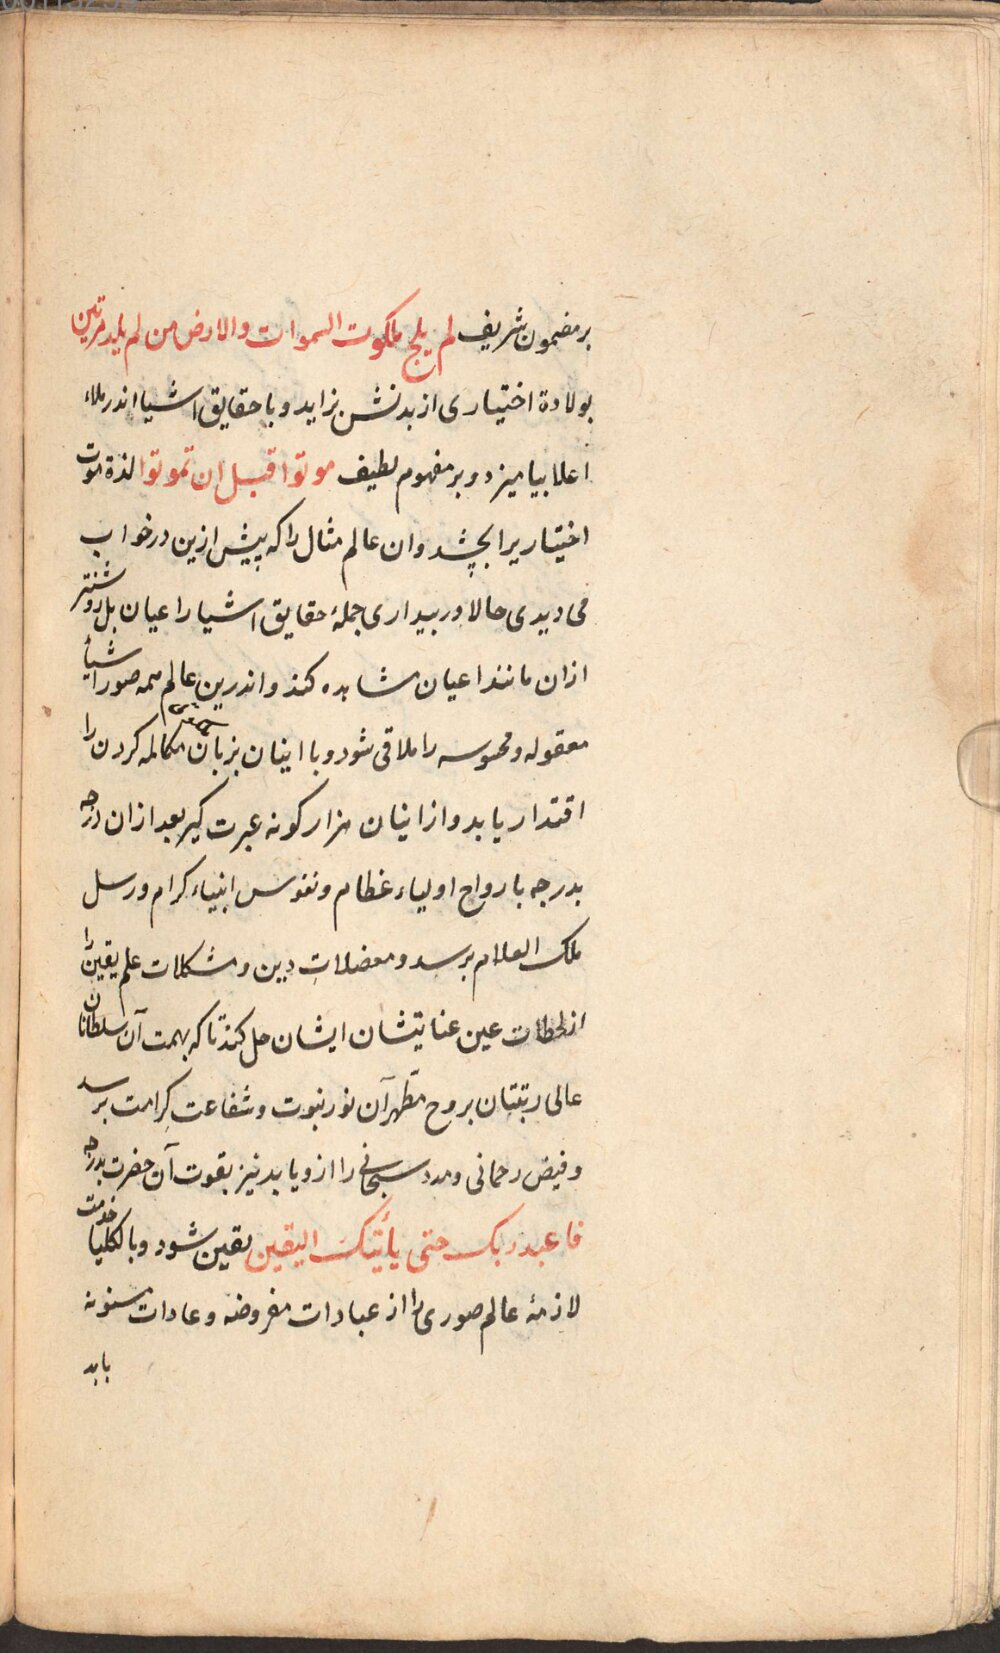 بر مضمون شریف لم یلج ملکوت السموات والارض من لم یلد مرتین
بولادة اختیاری از بدنش بزاید و با حقایق اشیا اندر ملاء
اعلا بیامیزد و بر مفهوم لطیف موتوا قبل ان تموتوا لذة موت
اختیاریرا بچشد وان عالم مثال را که پیش ازین در خواب
می دیدی حالا در بیداری جملۀ حقایق اشیا را عیان بل روشنتر
ازان مانند اعیان مشاهده کند و اندرین عالم همه صور اشیأ
معقوله و محسوسه را ملاقی شود و با اینان بزبان مکالمه کردن را
اقتدار یابد و از اینان هزار کونه عبرت کیر بعد ازان درجه
بدرجه بارواح اولیاء عظام و نفوس انبیاء کرام و رسل
ملک العلام برسد و معضلات دین و مشکلات علم یقین را
از لحظات عین عنایتشان ایشان حل کند تا که بهمت آن سلطانان
عالی رتبتان بروح مطهر آن نور نبوت و شفاعت کرامت برسد
و فیض رحمانی و مدد سبحانی را ازو یابد نیز بقوت آن حضرت بدرجه
فاعبد ربک حتی یأتیک الیقین یقین شود و بالکلیا خدمت
لازمۀ عالم صوری را از عبادات مفروضه و عادات مسنونه
یابد